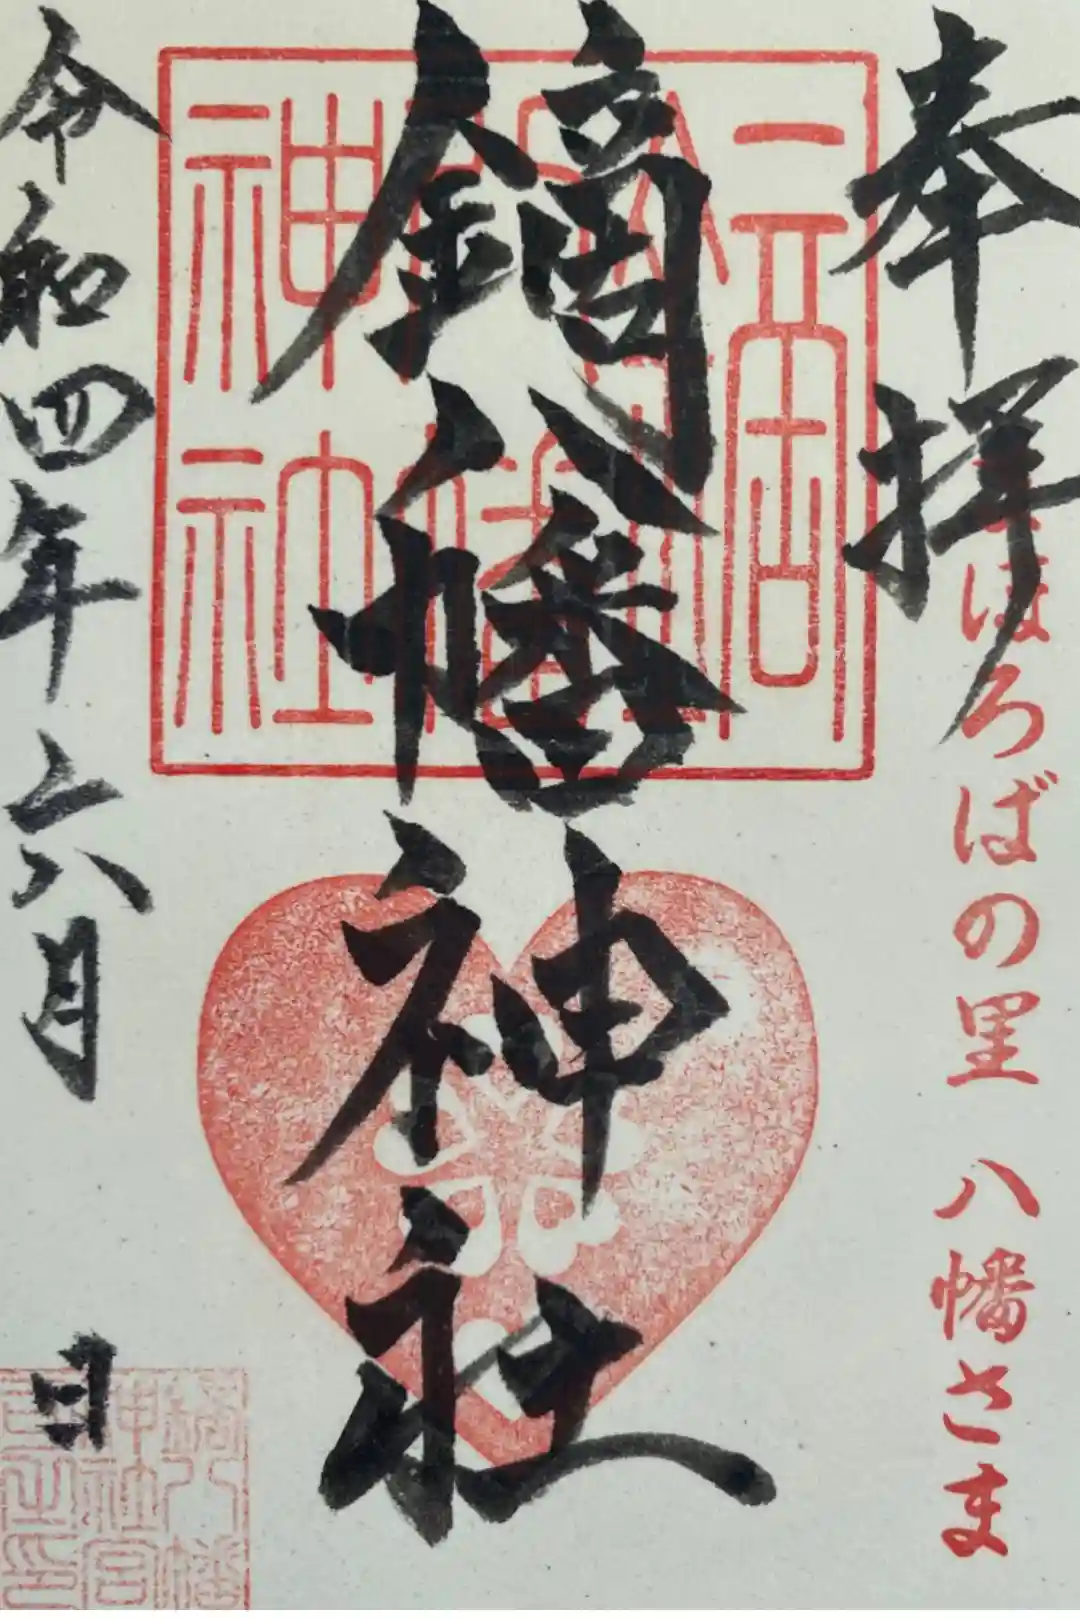 奉拝
まほろばの里 八幡さま
鏑八幡神社
令和四年六月 日
鏑八幡
神社宮
司之印